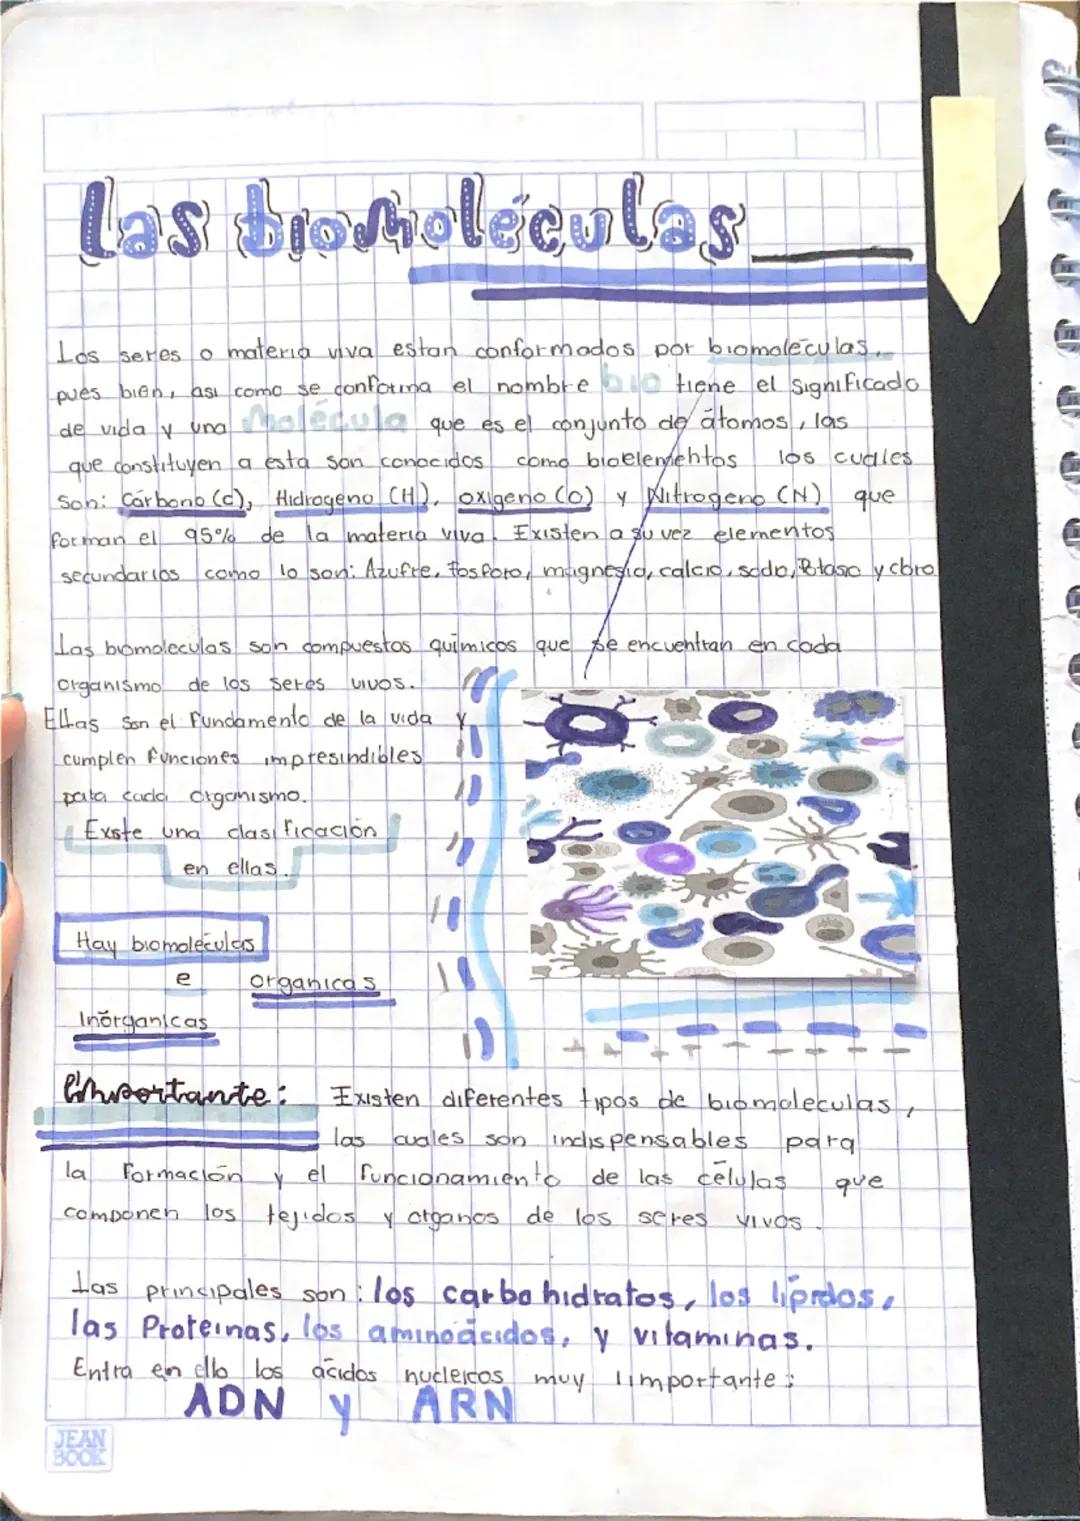 Las biomoléculas
Los seres o materia viva estan conformados por biomoléculas,
pues bien, asi como se conforma el nombre bio tiene el significado
de vida y una molécula que es el conjunto de átomos, las
que constituyen a esta son conocidos como bioelementos los cuales
son: Cárbono (c), Hidrogeno (H), oxigeno (O) y Nitrogeno (N) que
forman el 95% de la materia viva. Existen a su vez elementos
secundarios como lo son: Azufre, fosforo, magnesio, calcio, sodio, Potasio y cloro
Las biomoleculas son compuestos químicos que se encuentran en cada
organismo de los seres vivos.
Ellas son el fundamento de la vida y
cumplen funciones impresindibles
para cada organismo.
Existe una clasificación
en ellas.
Hay biomoléculas
e organicas
Inórganicas
Importante: Existen diferentes tipos de biomoleculas,
las cuales son indispensables para
la formación y el funcionamiento de las células que
componen los tejidos y organos de los seres vivos.
Las principales son: los carbohidratos, los lípidos,
las Proteinas, los aminoácidos, y vitaminas.
Entra en ello los ácidos nucleicos muy iimportante:
ADN y ARN
JEAN
BOOK